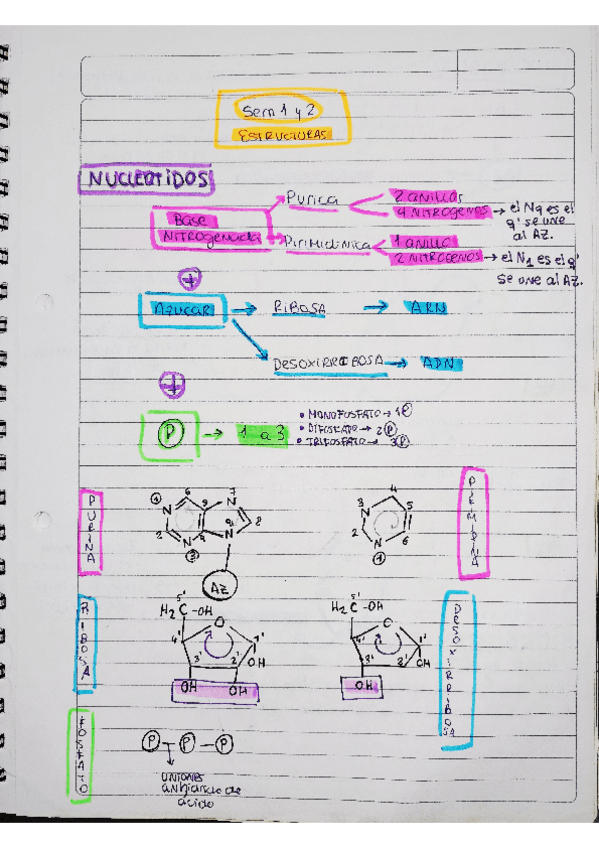 Sem 1 y 2
ESTRUCTURAS
NUCLEOTIDOS
BASE
NITROGENADA
PURICA
2 anillos
4 NITROGENOS → el N9 es el
q' se une
al AZ.
PIRIMIDINICA
1 anillo
2 NITROGENOS → el N1 es el q'
se une al AZ.
+
AZUCAR → RIBOSA → ARN
DESOXIRRIBOSA → ADN
+
P → 1 a 3
• MONOFOSTATO → 1 P
• DIFOSTATO → 2 P
• TRIFOSTATO → 3 P
PURINA
1 6 5 N 7
N 8
2 N 4 N 9
3
AZ
PIRIMIDINA
4
3 N 5
2 N 6
1
RIBOSA
5'
H2C-OH
O
4' 1'
3' 2' OH
OH OH
DESOXIRRIBOSA
5'
H2C-OH
4' 1'
3' 2' OH
OH
FOSTATO
P - P - P
UNIONES
anhidrido de
acido